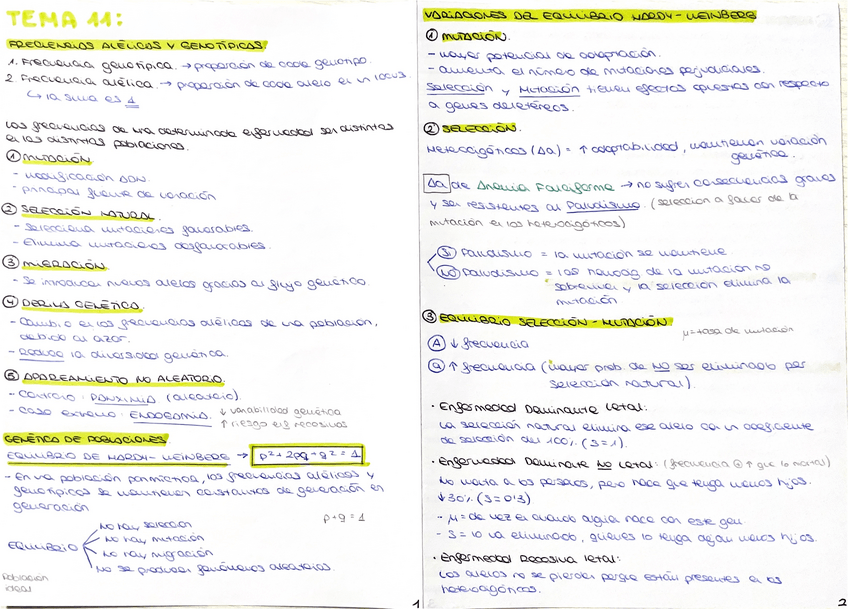 TEMA 11:
FRECUENCIAS ALÉLICAS Y GENOTÍPICAS
1. Frecuencia genotípica. → proporción de cada genotipo.
2 Frecuencia alélica. → proporción de cada alelo en un locus.
↳ la suma es 1
Las frecuencias de una determinada enfermedad son distintas
en las distintas poblaciones.
① MUTACIÓN.
- modificación ADN.
- principal fuente de variación
② SELECCIÓN NATURAL.
- Selecciona mutaciones favorables.
- Elimina mutaciones desfavorables.
③ MIGRACIÓN.
- Se introducen nuevos alelos gracias al flujo genético.
④ DERIVA GENÉTICA.
- Cambio en las frecuencias alélicas de una población,
debido al azar.
- Reduce la diversidad genética.
⑤ APAREAMIENTO NO ALEATORIO.
- Contrario: PANXIMIA (aleatorio).
- Caso extremo: ENDOGAMIA. ↓ variabilidad genética
↑ riesgo enf recesivas
GENÉTICA DE POBLACIONES
EQUILIBRIO DE HARDY-WEINBERG → p²+2pq+q²=1
- En una población panmíctica, las frecuencias alélicas y
genotípicas se mantienen constantes de generación en
generación
p+q=1
EQUILIBRIO
No hay selección
No hay mutación
No hay migración
No se producen fenómenos aleatorios.
Población
ideal
1
VARIACIONES DEL EQUILIBRIO HARDY-WEINBERG
① MUTACIÓN.
- mayor potencial de adaptación.
- aumenta el número de mutaciones perjudiciales.
Selección y Mutación tienen efectos opuestos con respecto
a genes deletéreos.
② SELECCIÓN.
Heterocigóticos (Aa) = ↑ adaptabilidad, mantienen variación
genética.
Aa de Anemia Falciforme → no sufren consecuencias graves
y son resistentes al Paludismo. (selección a favor de la
mutación en los heterocigóticos)
SI Paludismo = la mutación se mantiene.
NO Paludismo = los homocig de la mutación no
sobreviven y la selección elimina la
mutación
③ EQUILIBRIO SELECCIÓN-MUTACIÓN.
μ = tasa de mutación
Ⓐ ↓ frecuencia
ⓐ ↑ frecuencia (mayor prob. de NO ser eliminado por
selección natural).
· Enfermedad Dominante Letal:
La selección natural elimina ese alelo con un coeficiente
de selección del 100% (S=1).
· Enfermedad Dominante NO Letal: (frecuencia ⓐ ↑ que la mortal)
No mata a las personas, pero hace que tenga menos hijos.
↓30% (S=0'3)
- μ = de vez en cuando alguien nace con este gen.
- S = lo va eliminando, quienes lo tengan dejan menos hijos.
· Enfermedad Recesiva letal:
Los alelos no se pierden porque están presentes en los
heterocigóticos.
2